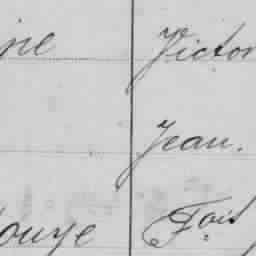 ine Victor
Jean.
ouye Fois